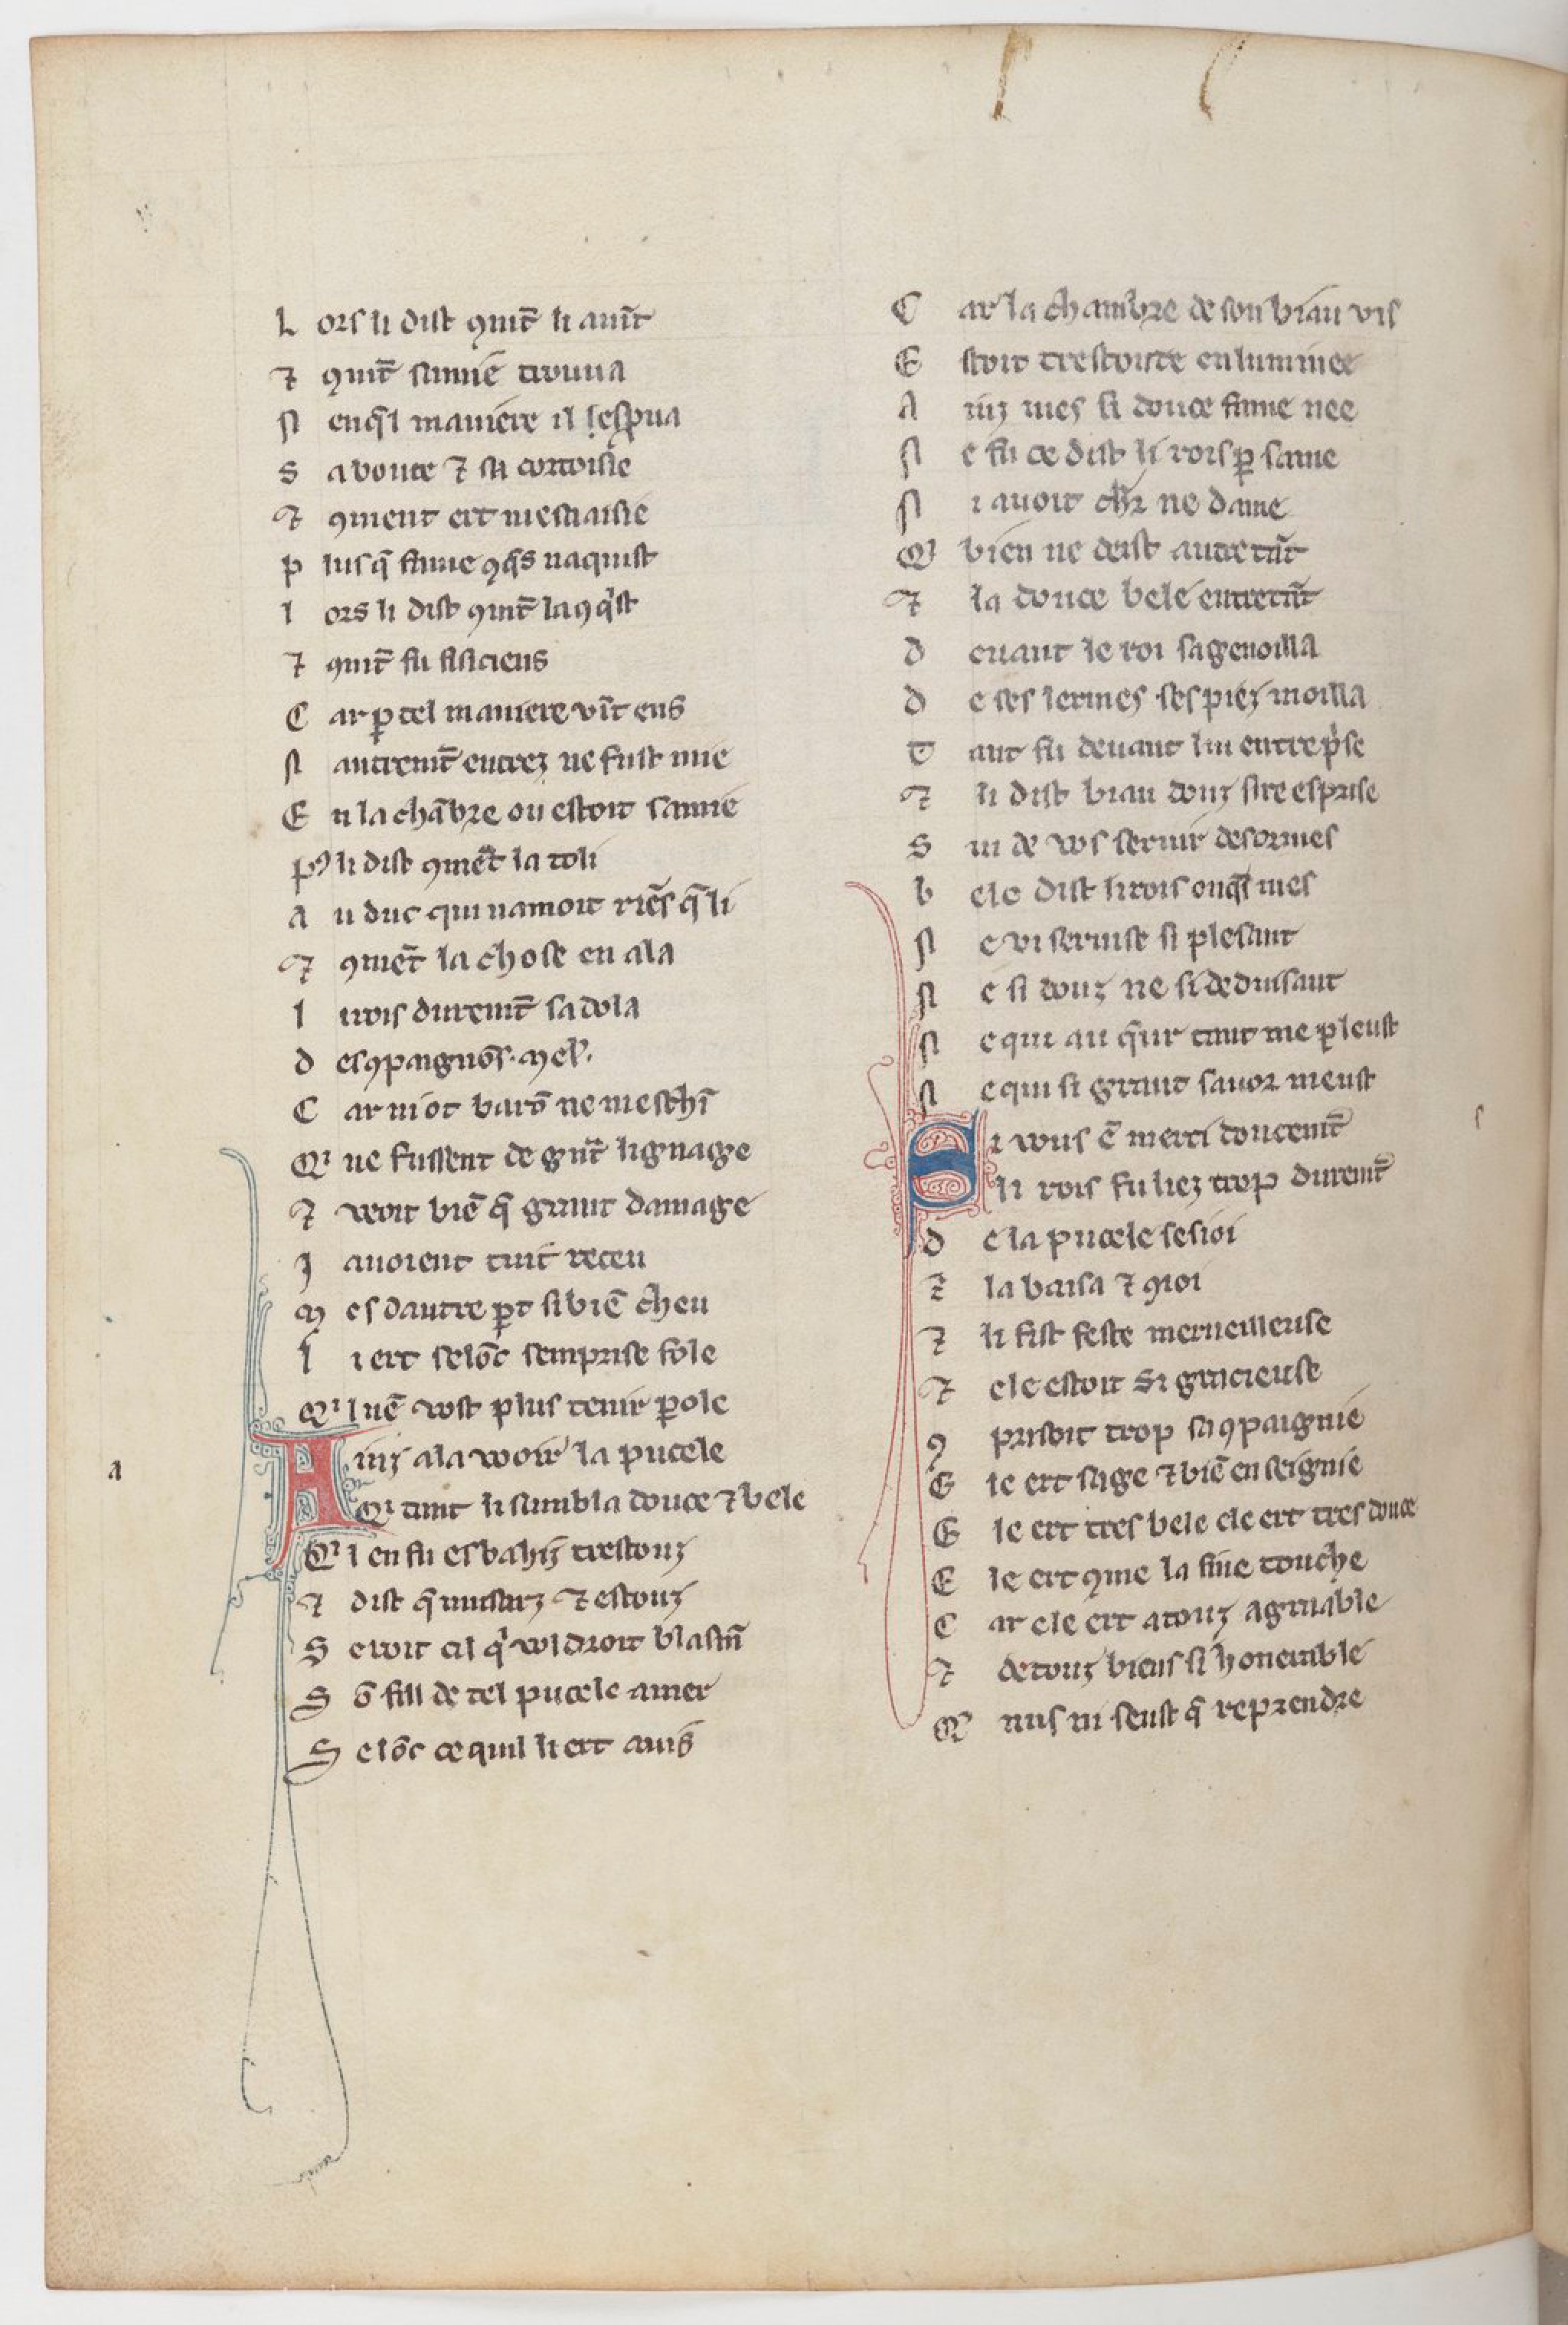 L ors li dist ꝯmt̃ li auīt
⁊ ꝯmt̃ samie trouua
N enq̃l maniere il lesp̱ua
S a bonte ⁊ sa cortoisie
⁊ ꝯment ert mesaaisie
P lus q̃ fame ꝯq̃s naquist
L ors li dist ꝯmt̃ la ꝯq̇st
⁊ ꝯmt̃ fu fisiciens
C ar ꝑ tel maniere vīt ens
N autremt̃ entrez ne fust mie
E n la chãbre ou estoit samie
P ꝰ li dist ꝯmẽt la toli
A u duc qui namoit riẽs q̃ li
⁊ ꝯmẽt la chose en ala
L i rois duremt̃ sadola
D es ꝯpaignõs. mel'.
C ar ni ot barõ ne meschī
Qͥ ne fussent de gr̃nt lignage
⁊ voit biẽ q̃ grant damage
J auoient tuit receu
M es dautre ꝑt si biẽ cheu
L i ert selõc semprise fole
Qͥ l nẽ vost plus tenir ꝑole
A inz ala voir la pucele
Qͥ tant li sambla douce ⁊ bele
Qͥ l en fu esbahiz trestouz
⁊ dist q̃ musarz ⁊ estouz
S eroit cil q̇ voldroit blasm̃
S õ fill de tel pucele amer
S elõc ce quil li ert auis
C ar la chambre de son biau vis
E stoit trestoute enluminee
A inz mes si douce fame nee
N e fu ce dist li rois ꝑ same
N i auoit chr̃ ne dame
Qͥ bien ne deist autretãt
⁊ la douce bele entretãt
D euant le roi sagenoilla
D e ses lermes ses piez moilla
T ant fu deuant lui entrep̓se
⁊ li dist biau douz sire esprise
S ui de vos seruir desormes
B ele dist li rois onq̃s mes
N e vi seruise si plesant
N e si douz ne si deduisant
N e qui au q̃ur tant me pleust
N e qui si grant sauor meust
S i vous ẽ merci doucemt̃
li rois fu liez trop duremt̃
D e la pucele sesioi
⁊ la baisa ⁊ ꝯioi
⁊ li fist feste merueilleuse
⁊ ele estoit si gracieuse
Q prisoit trop sa ꝯpaignie
E le ert sage ⁊ biẽ enseignie
E le ert tres bele ele ert tres douce
E le ert ꝯme la fine touche
C ar ele ert a touz agraable
⁊ de touz biens si honerable
Qͥ nus ni seust q̃ reprendre
a